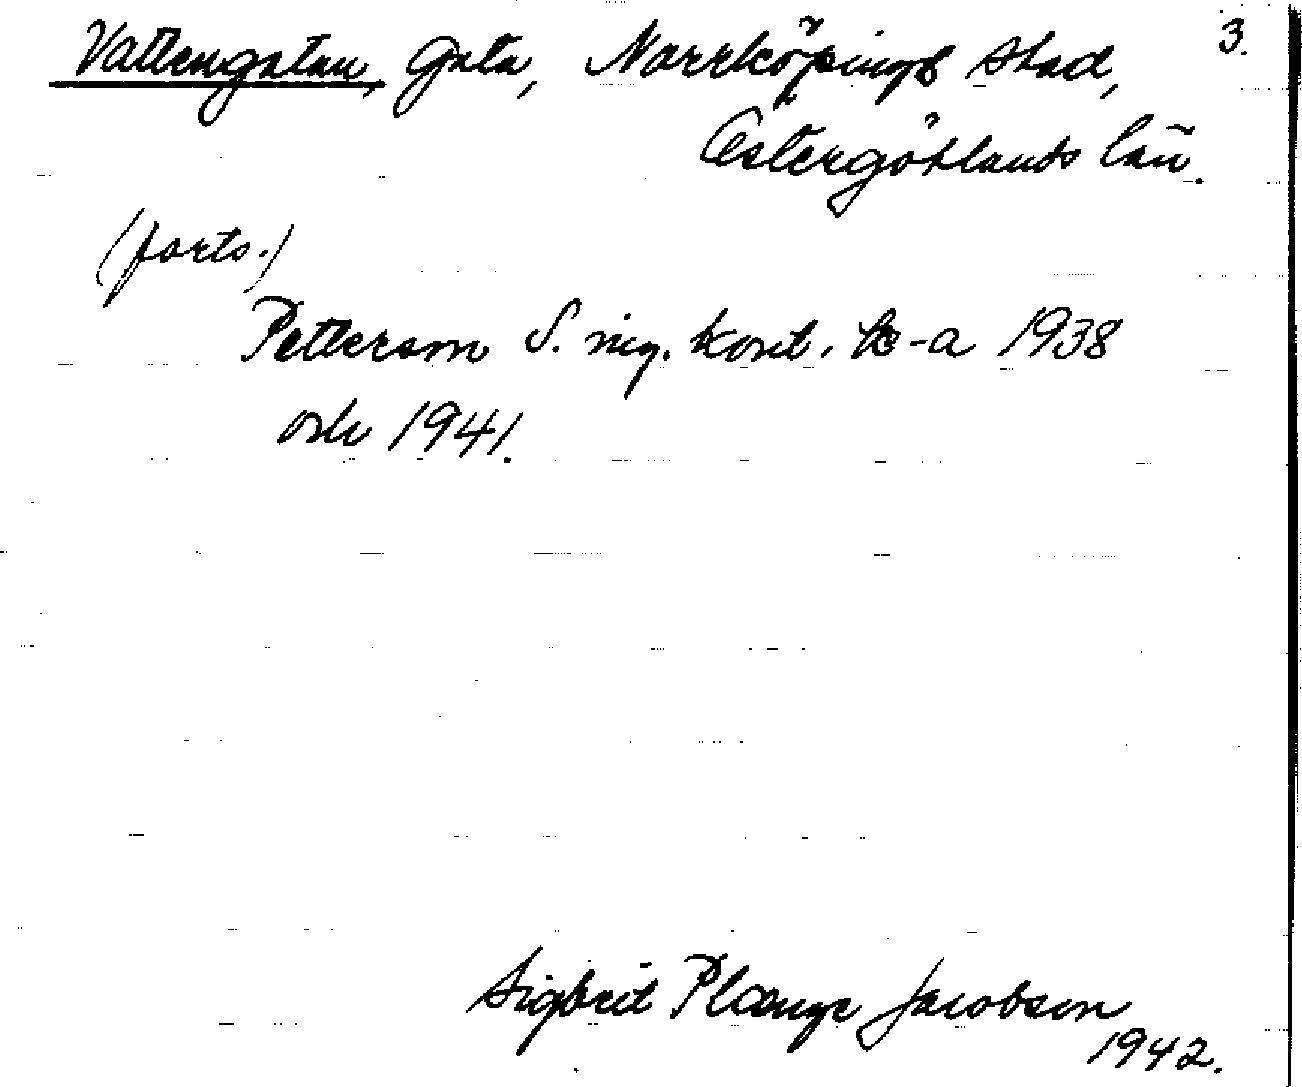 3.
Vattengatan, Gata, Norrköpings stad,
Östergötlands län.
(forts.)
Petterson S. ing. kont. k-a 1938
och 1941.
Sigbrit Plænge Jacobson
1942.